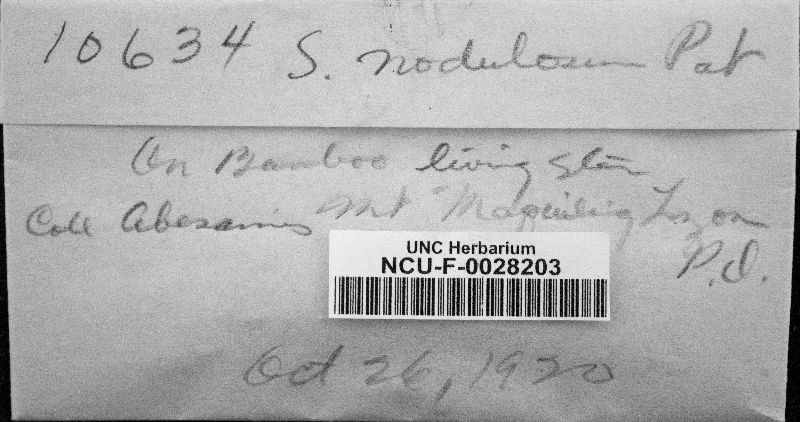 10634 S. nodulosum Pat
On Bamboo living stem
Coll Abesamis Mt Maquiling Luzon
P.I.
UNC Herbarium
NCU-F-0028203
Oct 26, 1920